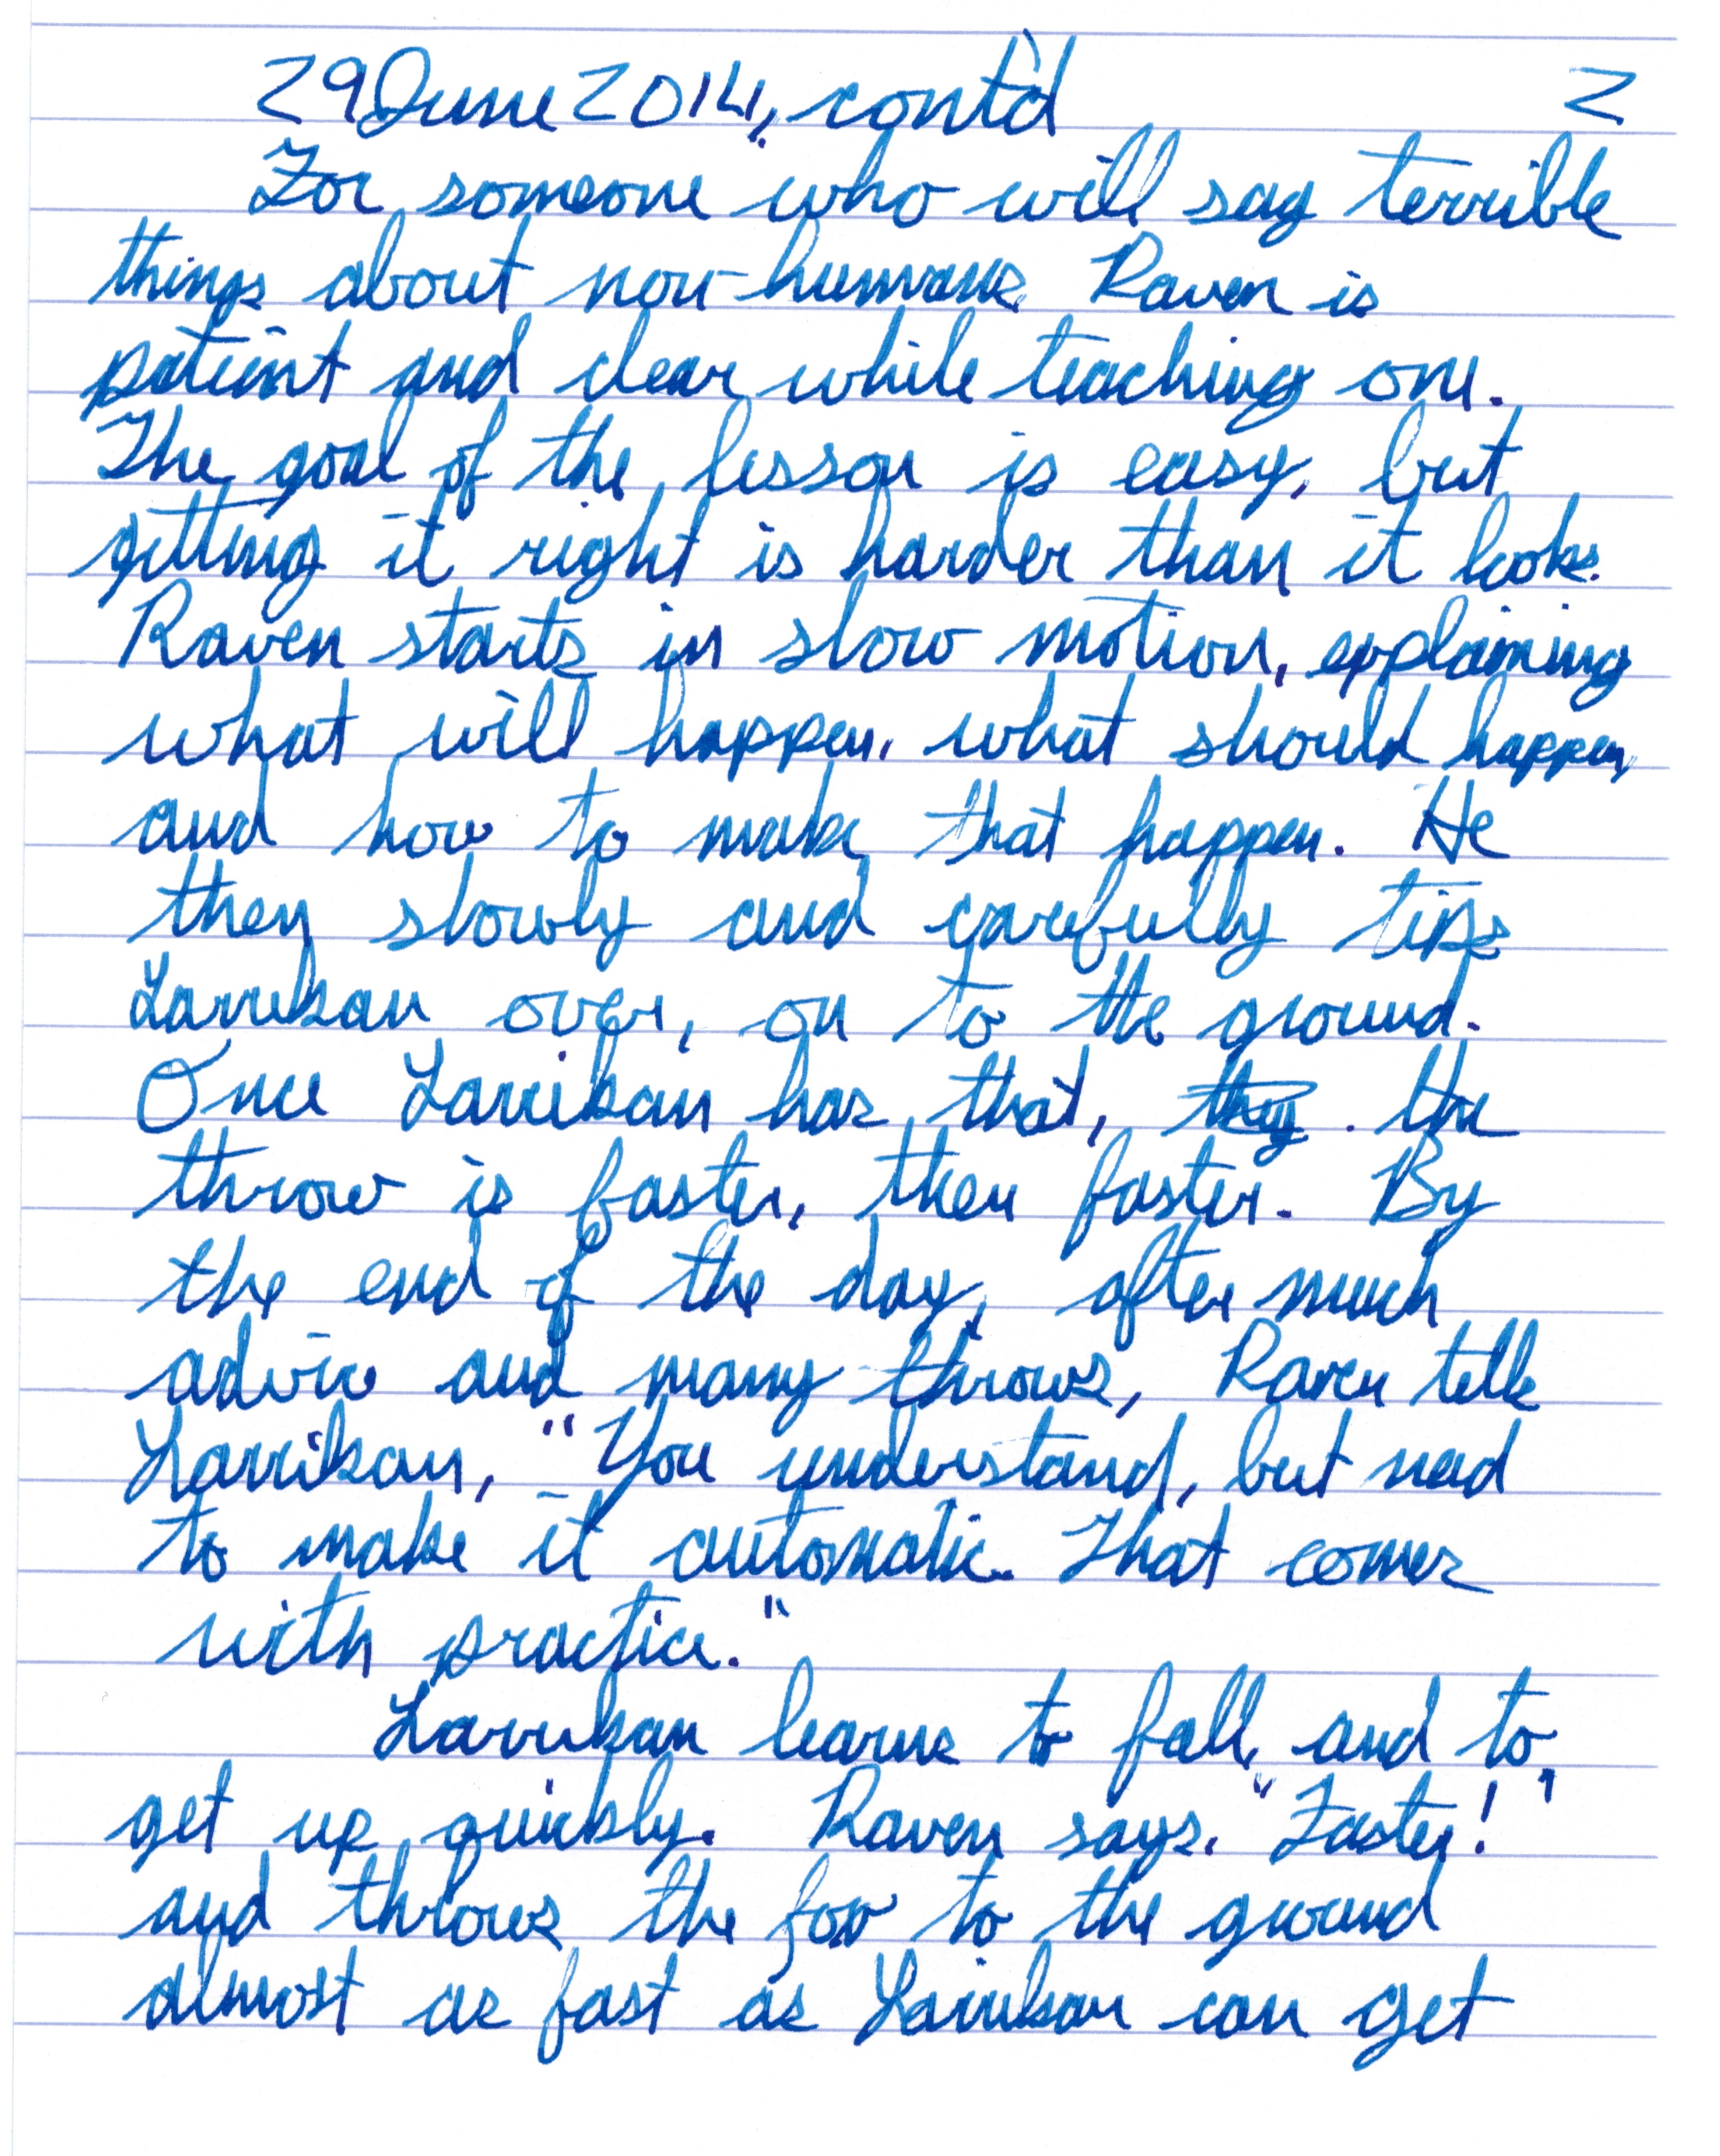 29 June 2014, cont'd 2
For someone who will say terrible
things about non-humans Raven is
patient and clear while teaching one.
The goal of the lesson is easy, but
getting it right is harder than it looks.
Raven starts in slow motion, explaining
what will happen, what should happen,
and how to make that happen. He
then slowly and carefully tips
Larrikan over, on to the ground.
Once Larrikan has that, they . the
throw is faster, then faster. By
the end of the day, after much
advice and many throws, Raven tells
Larrikan, "You understand, but need
to make it automatic. That comes
with practice."
Larrikan learns to fall, and to
get up quickly. Raven says, "Faster!"
and throws the fox to the ground
almost as fast as Larrikan can get